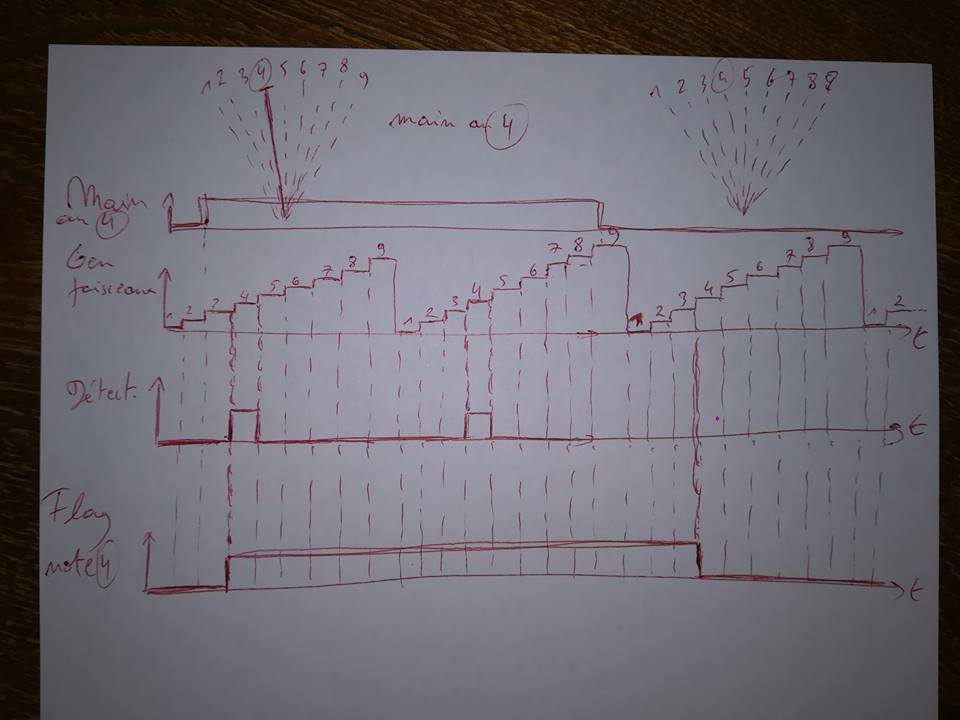 1 2 3 4 5 6 7 8 9
1 2 3 4 5 6 7 8 9
main au 4
Main
au 4
Gen
faisceau
1 2 3 4 5 6 7 8 9 1 2 3 4 5 6 7 8 9 1 2 3 4 5 6 7 8 9 1 2
t
Détect.
t
Flag
note 4
t